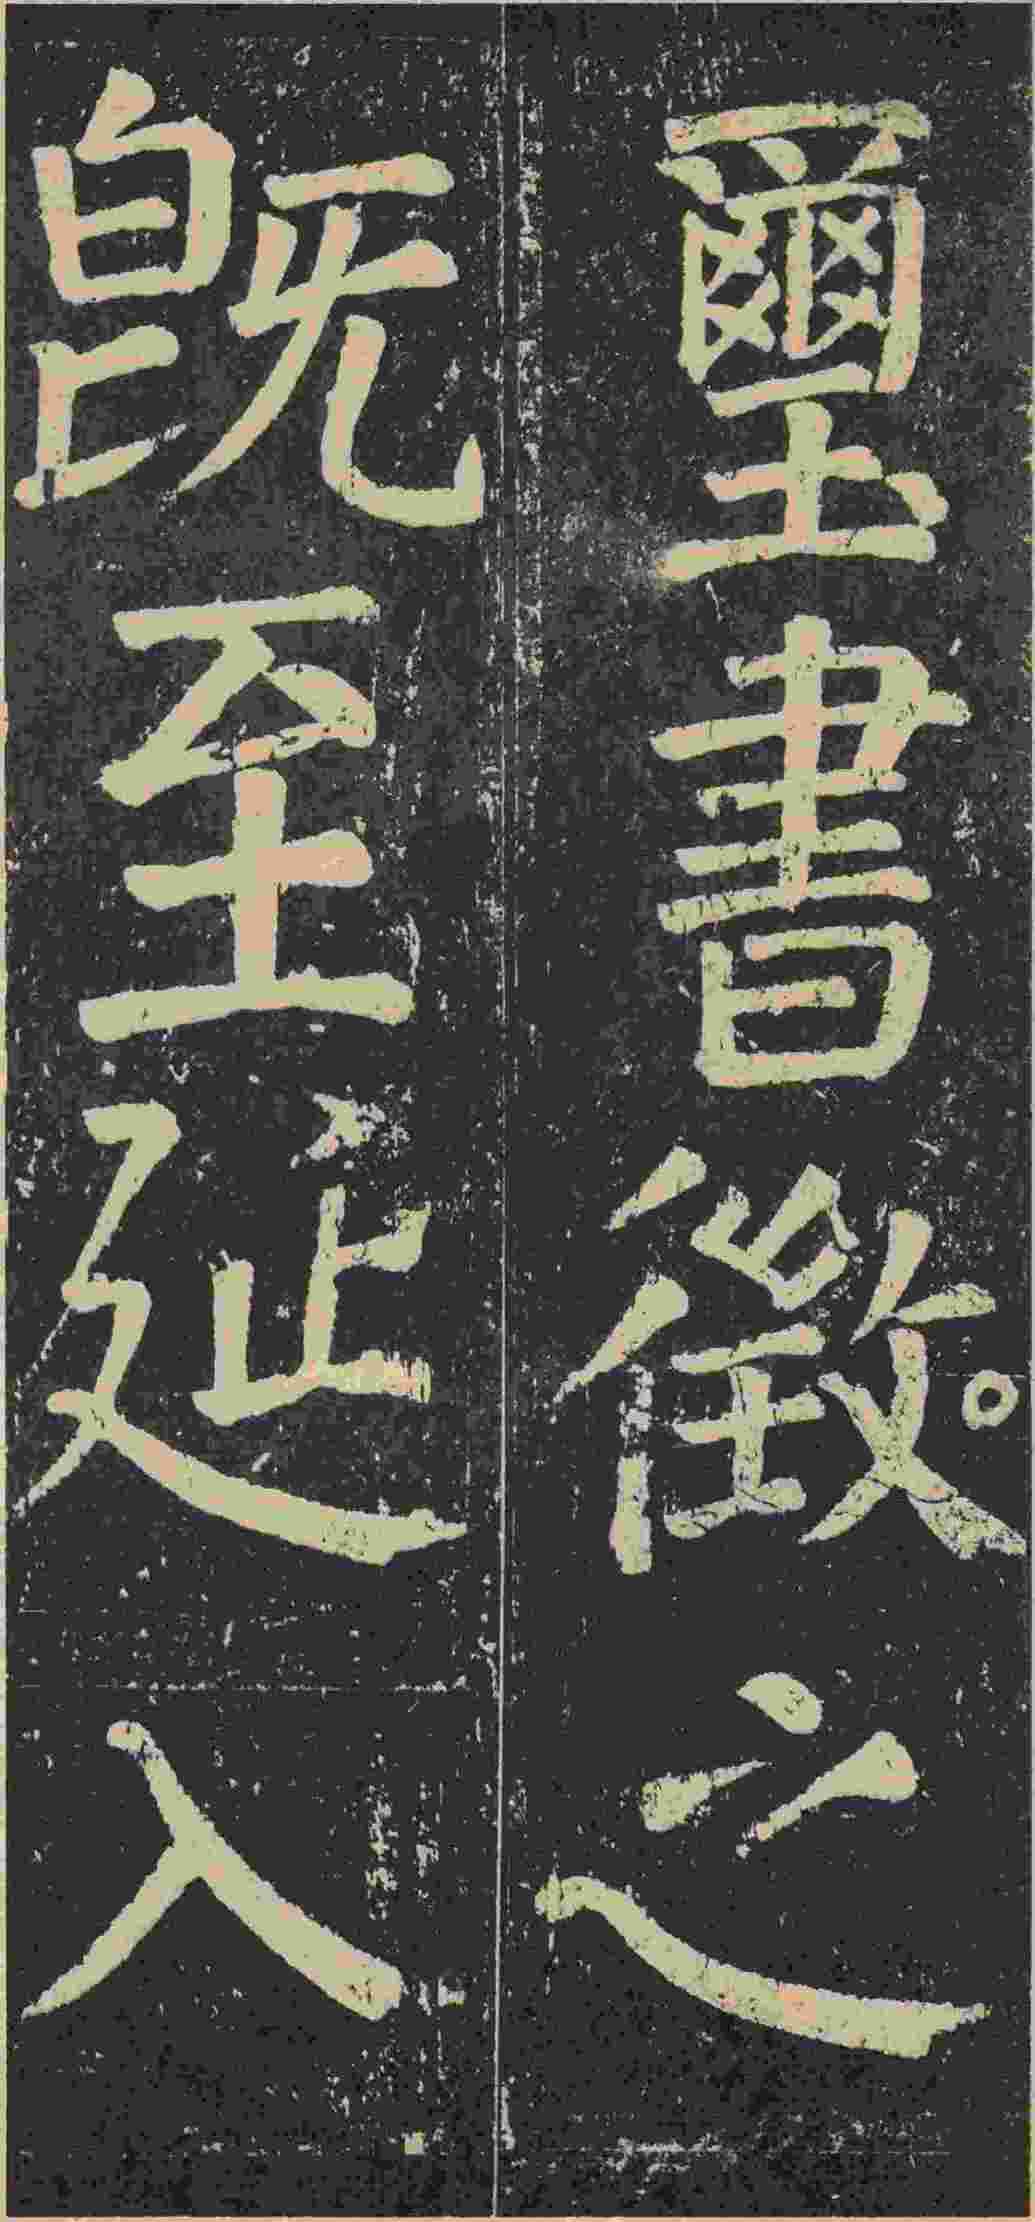 璽書徵。之
既至延入